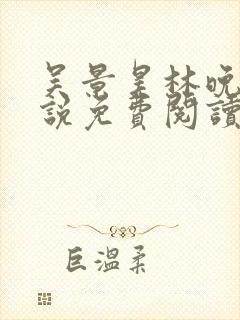 吴景昊林晚
說免費閱讀
巨溫柔